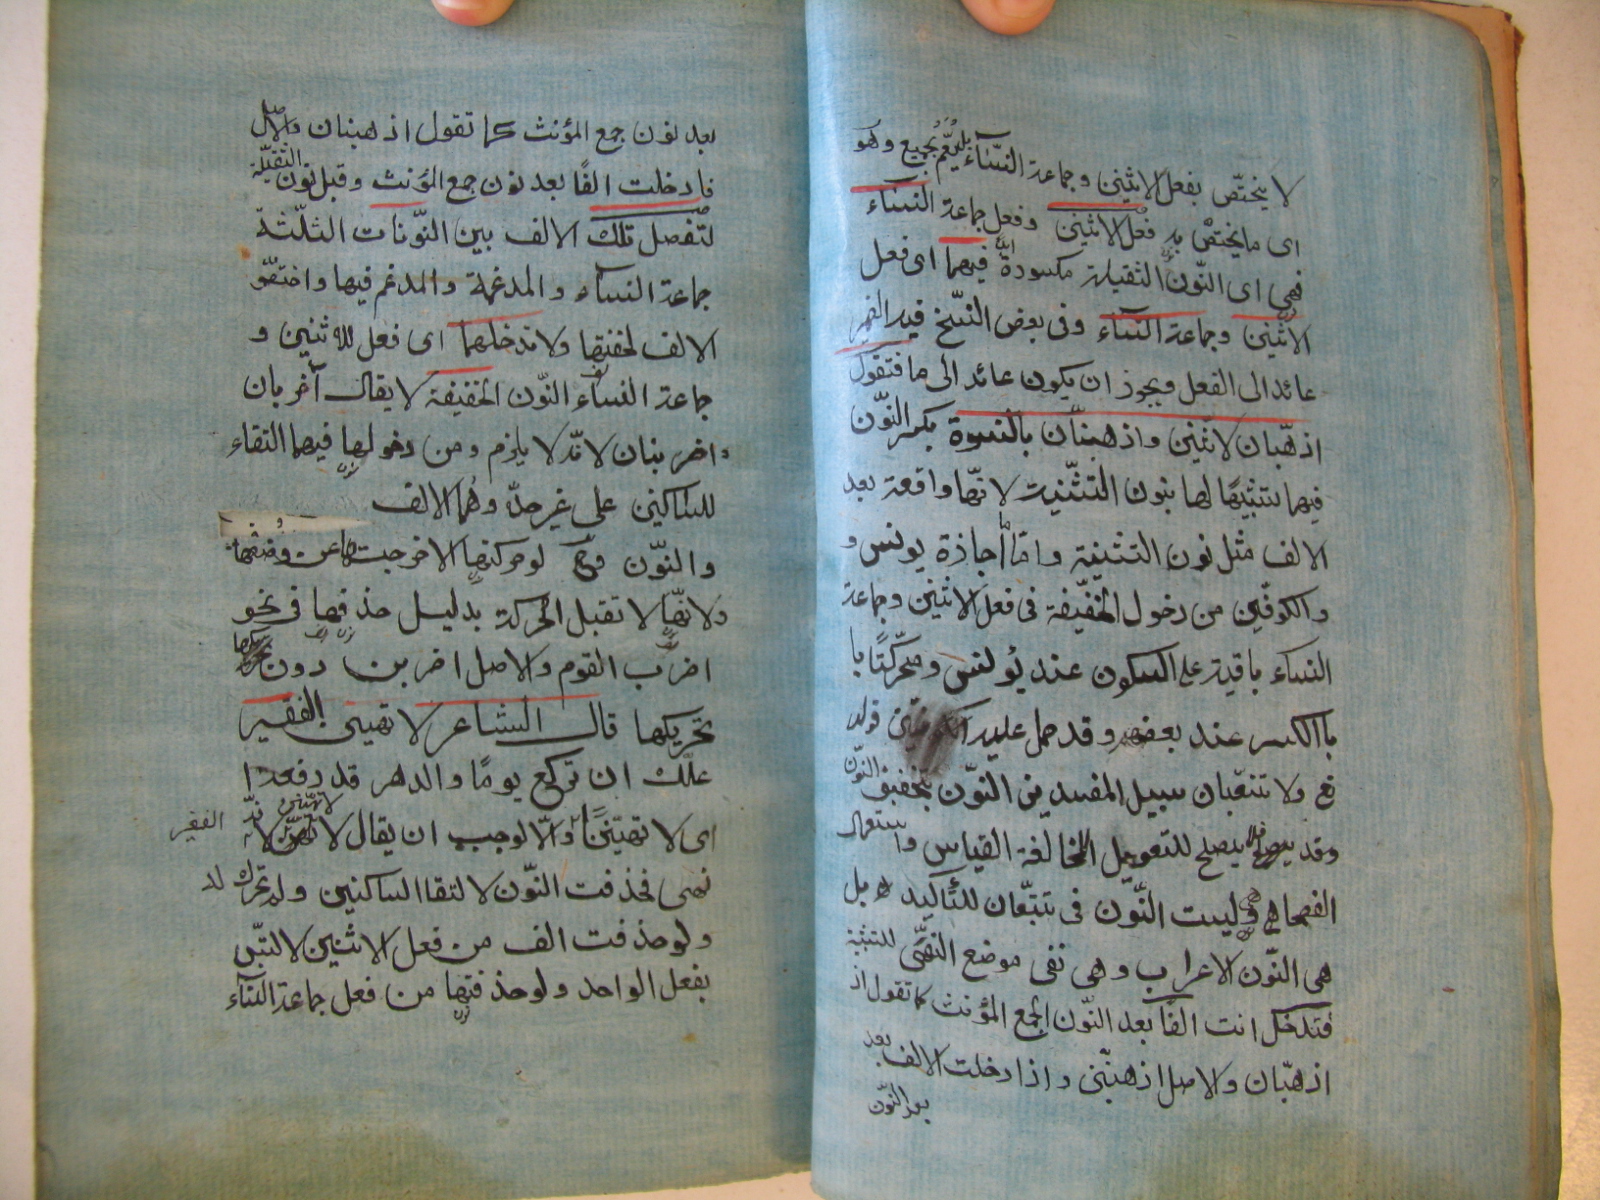 لا يختصّ بفعل الاثنين وجماعة النسّآء بل يعمّ بجميع وهو
اى ما يختصّ به فعل الاثنين وفعل جماعة النساء
فهى اى النّون الثقيلة مكسورة فيهما اى فعل
الاثنين وجماعة النسآء وفى بعض النسّخ فيه الضمير
عائد الى الفعل ويجوز ان يكون عائد الى ما فتقول
اذهبّان لاثنين واذهبنانّ بالنسوة بكسر النوّن
فيهما تشبيهًا لها بنون التثّنية لانّها واقعة بعد
الالف مثل نون التثنية وامّا اجازة يونس و
والكوفّين من دخول الخفيّفة فى فعل الاثنين وجماعة
النساء باقية على السكون عند يونس ومتحرّكتًا با
باالكسر عند بعضهم وقد حمل عليه قوله
تع ولا تتبّعان سبيل المفسدين النوّن بتخفيف النوّن
وقد يصلح للتعويل لمخالفة القياس واستعمال
الفصحا هى وليست النّون فى تتبّعان للتّأكيد بل
هى النّون الاعراب وهى نفى موضع النهّى للتثنية
فتدخل انت الفاً بعد النوّن الجمع المؤنث كما تقول اذ
اذهبّان والاصل اذهبنّنى واذا دخلت الالف بعد
بعد النّون
بعد نون جمع المؤنث كما تقول اذهبنان والاصل
فادخلت الفًا بعد نون جمع المؤنث وقبل نون الثقيلة
لتفصل تلك الالف بين النوّنات الثلثة
جماعة النسآء والمدغمة والمدغم فيها واختصّو
الالف لخفتها ولا تدخلهما اى فعل للاثنين و
جماعة النسآء النوّن الخفيفة لا يقال اضربان
واضربنان لانّه لا يلزم ومن دخولها فيهما التقاء
للساكنين على غير حدّه وهما الالف
والنوّن وح لو حركتها لاخرجت هاعن وضعها
ولانّها لا تقبل الحركة بدليل حذفها فى نحو
اضرب القوم والاصل اضربن دون
تحريكها قال الشاعر لا تهين الفقير
علّك ان تركع يومًا والدهر قد رفعه ا
اى لا تهينن والاّ لوجب ان يقال لا تهن لانّه الفقير
نهى فحذفت النوّن لالتقا الساكنين ولم تحرك
ولو حذفت الف من فعل الاثنين لالتبّس
بفعل الواحد ولو حذفتها من فعل جماعة النسآء